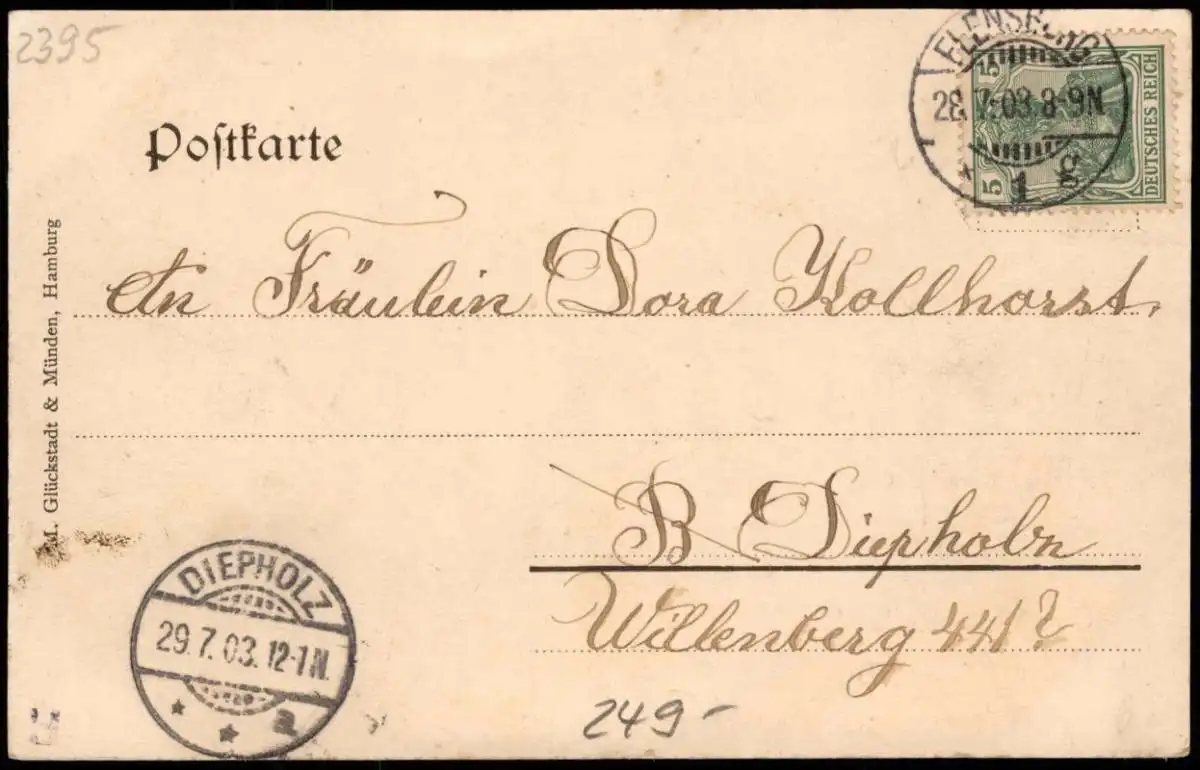 2395
FLENSBURG
28.7.03.8-9N
* 1 g
5
5
DEUTSCHES REICH
Poſtkarte
An Fräulein Dora Kollhorst,
B Diepholz
Willenberg 44
M. Glückstadt & Münden, Hamburg
DIEPHOLZ
29.7.03.12-1N.
* * a
249-